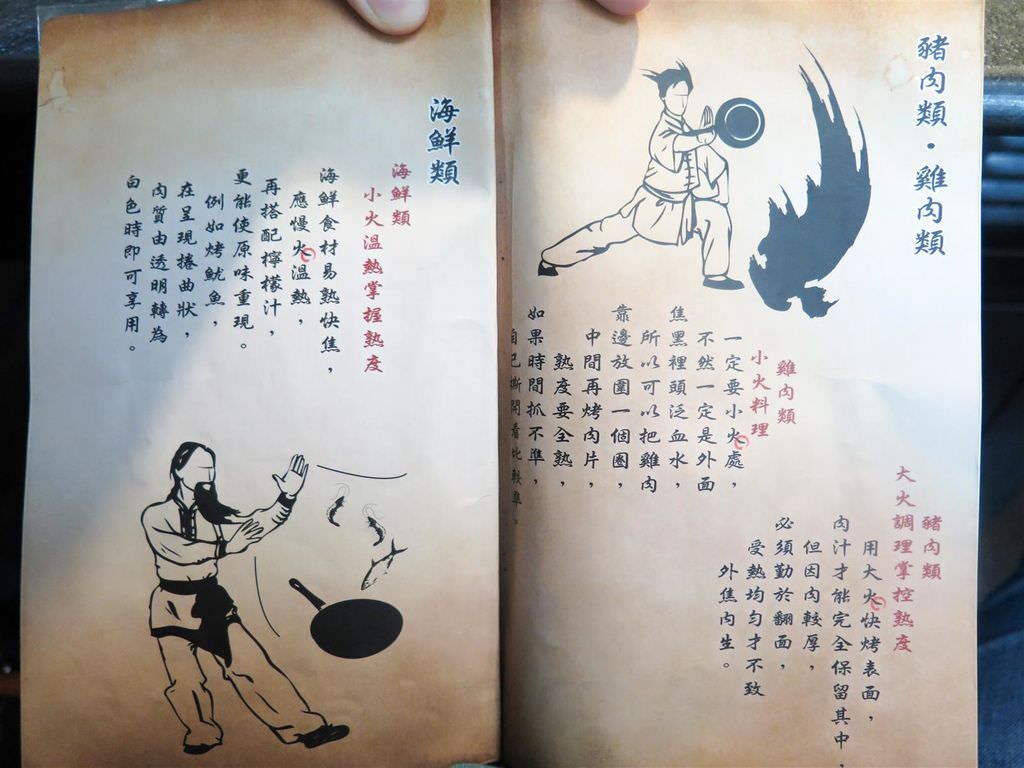 豬肉類・雞肉類
豬肉類
大火調理掌控熟度
用大火快烤表面，
肉汁才能完全保留其中，
但因肉較厚，
必須勤於翻面，
受熱均勻才不致
外焦內生。
雞肉類
小火料理
一定要小火處，
不然一定是外面
焦黑裡頭泛血水，
所以可以把雞肉
靠邊放圍一個圈，
中間再烤肉片，
熟度要全熟，
如果時間抓不準，
自己撕開看比較準。
海鮮類
海鮮類
小火溫熱掌握熟度
海鮮食材易熟快焦，
應慢火溫熱，
再搭配檸檬汁，
更能使原味重現。
例如烤魷魚，
在呈現捲曲狀，
肉質由透明轉為
白色時即可享用。